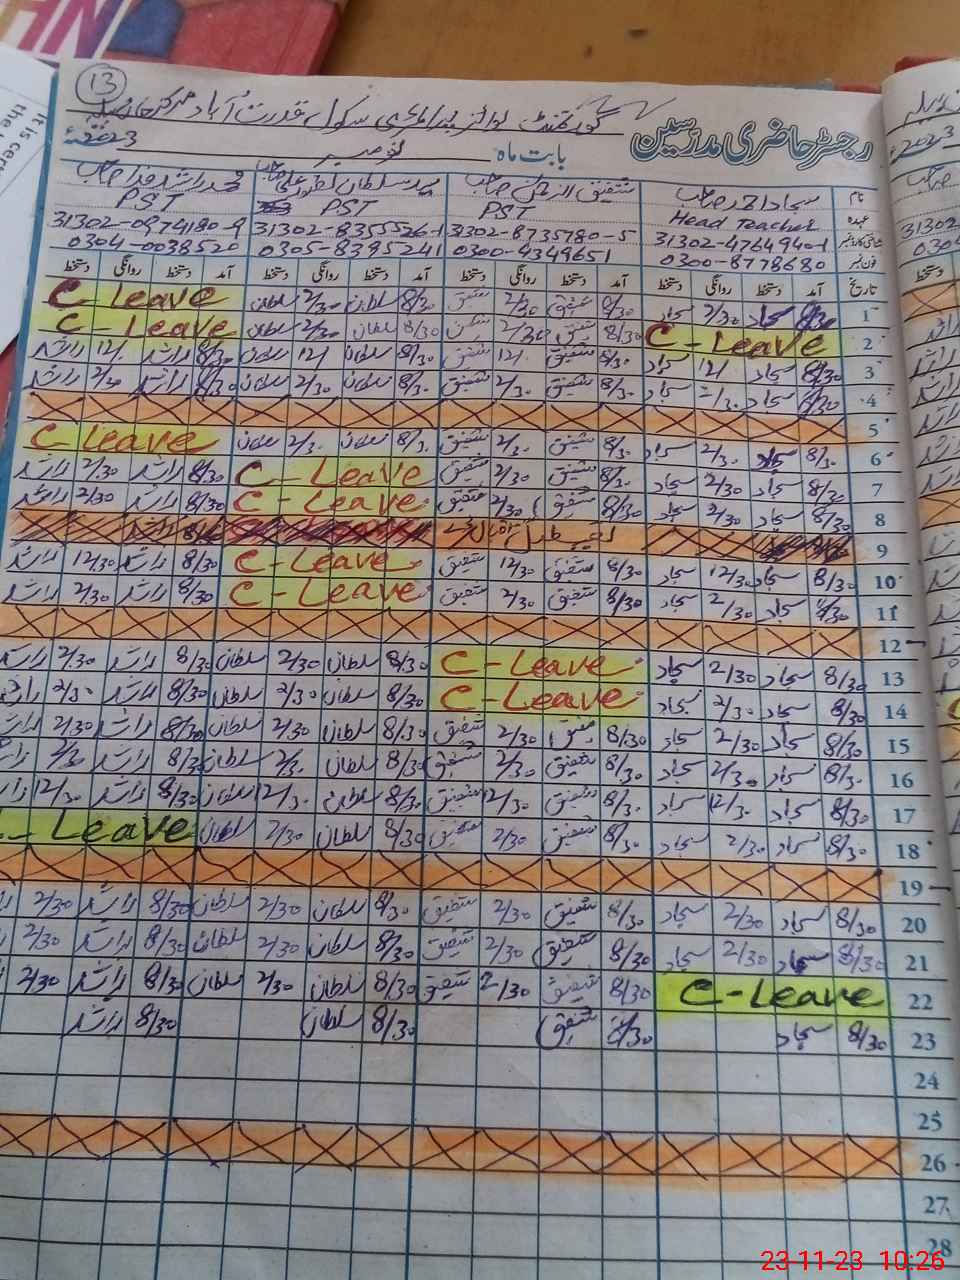 13
گورنمنٹ بوائز پرائمری سکول قدرت آباد مرکز
رجسٹر حاضری مدرسین
بابت ماہ نومبر 2023ء
نام سجاد احمد صاحب شفیق الرحمٰن صاحب محمد سلطان صاحب محمد راشد فدا صاحب
عہدہ Head Teacher PST PST PST
31302-4764940-1 31302-8735780-5 31302-8355526-1 31302-0974180-9
فون نمبر 0300-8778680 0300-4349651 0305-8395241 0304-0038520
تاریخ آمد دستخط روانگی دستخط آمد دستخط روانگی دستخط آمد دستخط روانگی دستخط آمد دستخط روانگی دستخط
1 8/30 سجاد 2/30 سجاد 8/30 شفیق 2/30 شفیق 8/30 سلطان 2/30 سلطان C - Leave
2 C - Leave 8/30 شفیق 2/30 شفیق 8/30 سلطان 2/30 سلطان C - Leave
3 8/30 سجاد 12/ سجاد 8/30 شفیق 12/ شفیق 8/30 سلطان 12/ سلطان 8/30 راشد 12/ راشد
4 8/30 سجاد 2/30 سجاد 8/30 شفیق 2/30 شفیق 8/30 سلطان 2/30 سلطان 8/30 راشد 2/30 راشد
5
6 8/30 سجاد 2/30 سجاد 8/30 شفیق 2/30 شفیق 8/30 سلطان 2/30 سلطان C - Leave
7 8/30 سجاد 2/30 سجاد 8/30 شفیق 2/30 شفیق C - Leave 8/30 راشد 2/30 راشد
8 8/30 سجاد 2/30 سجاد 8/30 شفیق 2/30 شفیق C - Leave 8/30 راشد 2/30 راشد
9 تعطیل اقبال ڈے
10 8/30 سجاد 12/30 سجاد 8/30 شفیق 12/30 شفیق C - Leave 8/30 راشد 12/30 راشد
11 8/30 سجاد 2/30 سجاد 8/30 شفیق 2/30 شفیق C - Leave 8/30 راشد 2/30 راشد
12
13 8/30 سجاد 2/30 سجاد C - Leave 8/30 سلطان 2/30 سلطان 8/30 راشد 2/30 راشد
14 8/30 سجاد 2/30 سجاد C - Leave 8/30 سلطان 2/30 سلطان 8/30 راشد 2/30 راشد
15 8/30 سجاد 2/30 سجاد 8/30 شفیق 2/30 شفیق 8/30 سلطان 2/30 سلطان 8/30 راشد 2/30
16 8/30 سجاد 2/30 سجاد 8/30 شفیق 2/30 شفیق 8/30 سلطان 2/30 سلطان 8/30 راشد 2/30
17 8/30 سجاد 12/30 سجاد 8/30 شفیق 12/30 شفیق 8/30 سلطان 12/30 سلطان 8/30 راشد 12/30
18 8/30 سجاد 2/30 سجاد 8/30 شفیق 2/30 شفیق 8/30 سلطان 2/30 سلطان - Leave
19
20 8/30 سجاد 2/30 سجاد 8/30 شفیق 2/30 شفیق 8/30 سلطان 2/30 سلطان 8/30 راشد 2/30
21 8/30 سجاد 2/30 سجاد 8/30 شفیق 2/30 شفیق 8/30 سلطان 2/30 سلطان 8/30 راشد 2/30
22 C - Leave 8/30 شفیق 2/30 شفیق 8/30 سلطان 2/30 سلطان 8/30 راشد 2/30
23 8/30 سجاد 8/30 شفیق 8/30 سلطان 8/30 راشد
24
25
26
27
28
23-11-23 10:26